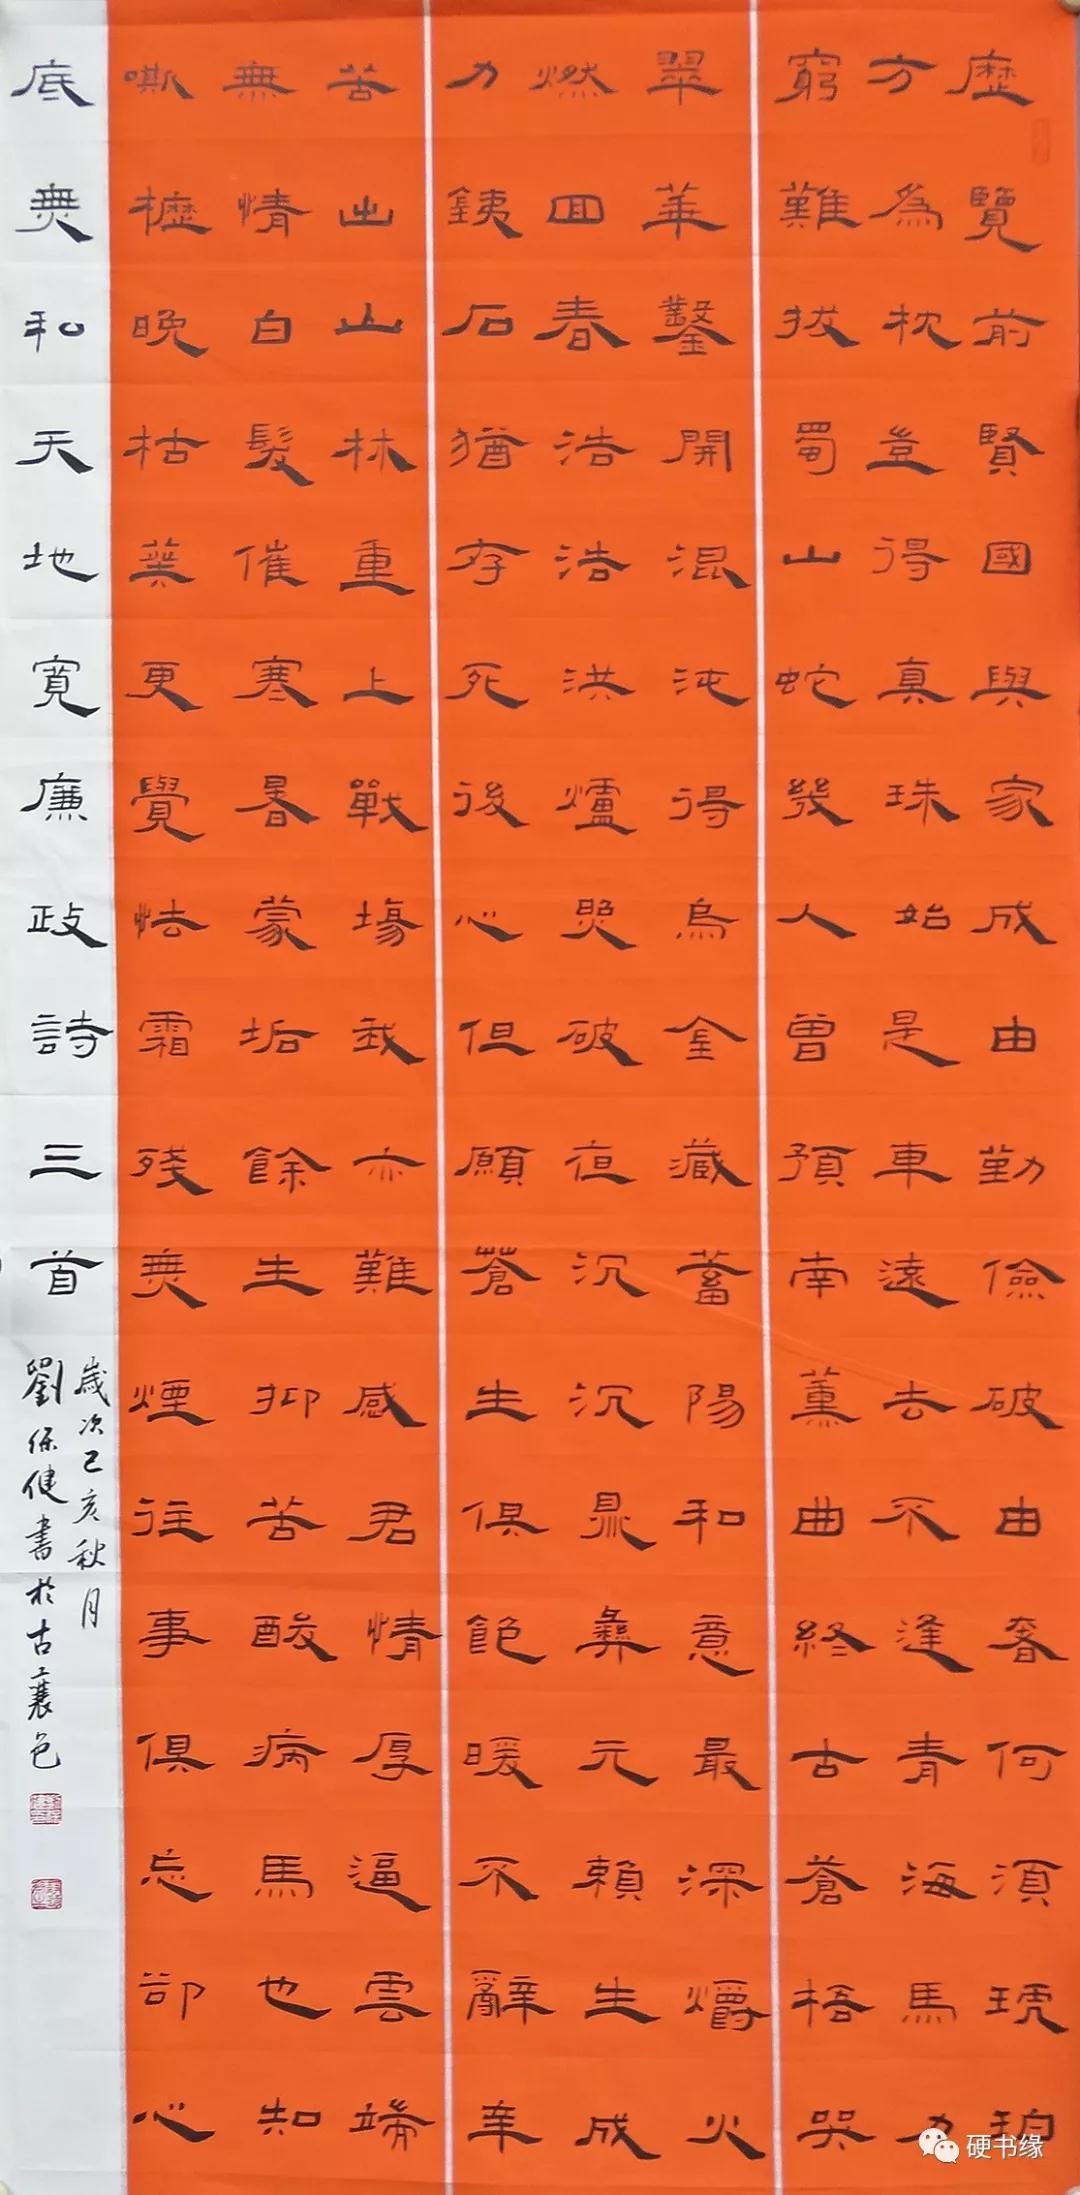 歷覽前賢國與家成由勤儉破由奢何須琥珀
方為枕豈得真珠始是車遠去不逢青海馬力
窮難拔蜀山蛇幾人曾預南薰曲終古蒼梧哭
翠華鑿開混沌得烏金藏蓄陽和意最深爝火
燃回春浩浩洪爐照破夜沉沉鼎彝元賴生成
力銕石猶存死後心但願蒼生俱飽暖不辭辛
苦出山林重上戰場我亦難感君情厚逼雲端
無情白髮催寒暑蒙垢餘生抑苦酸病馬也知
嘶櫪晚枯葉更覺怯霜殘無煙往事俱忘卻心
底無私天地寬廉政詩三首
歲次己亥秋月
劉保健書於古襄邑
硬书缘